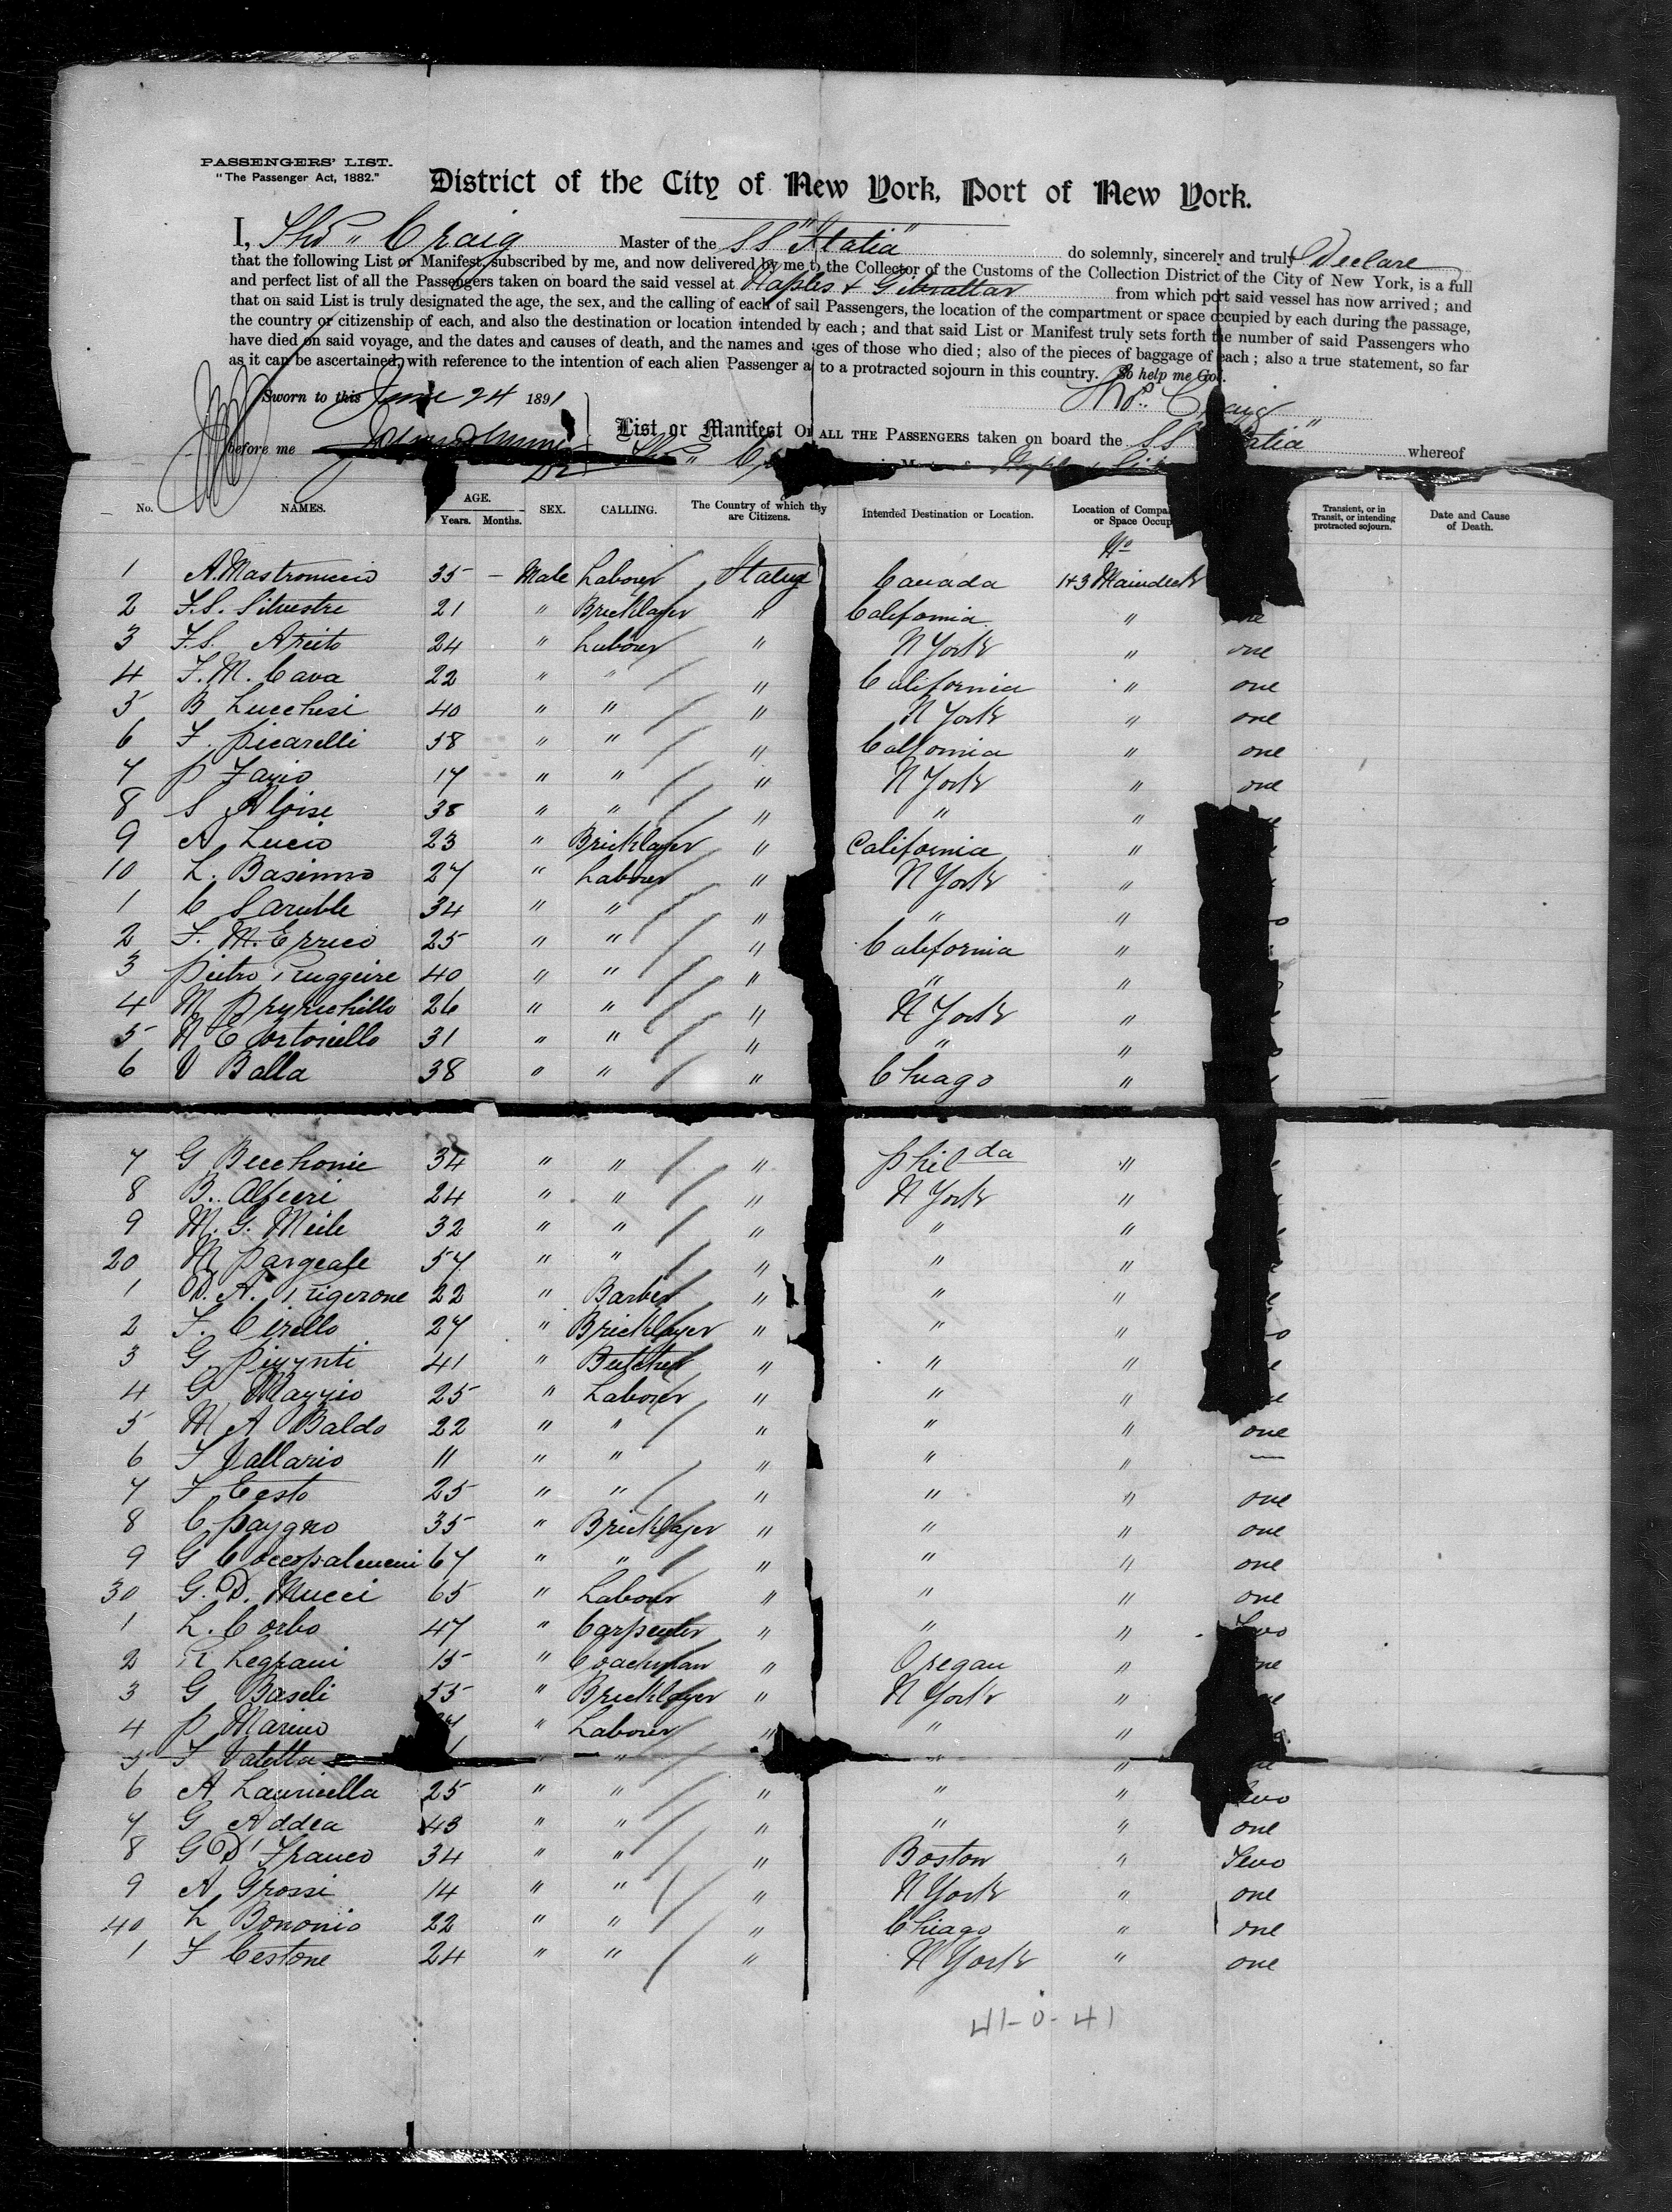 PASSENGERS' LIST.
"The Passenger Act, 1882."
District of the City of New York, Port of New York.
I, Thos Craig Master of the SS "Italia" do solemnly, sincerely and truly Declare
that the following List or Manifest, subscribed by me, and now delivered by me to the Collector of the Customs of the Collection District of the City of New York, is a full
and perfect list of all the Passengers taken on board the said vessel at Naples & Gibraltar from which port said vessel has now arrived; and
that on said List is truly designated the age, the sex, and the calling of each of said Passengers, the location of the compartment or space occupied by each during the passage,
the country or citizenship of each, and also the destination or location intended by each; and that said List or Manifest truly sets forth the number of said Passengers who
have died on said voyage, and the dates and causes of death, and the names and ages of those who died; also of the pieces of baggage of each; also a true statement, so far
as it can be ascertained, with reference to the intention of each alien Passenger as to a protracted sojourn in this country. So help me God.
Sworn to this June 24 1891
Thos. Craig
before me
List or Manifest OF ALL THE PASSENGERS taken on board the SS Italia" whereof
No. NAMES. AGE. Years. Months. SEX. CALLING. The Country of which they are Citizens. Intended Destination or Location. Location of Compa or Space Occup Transient, or in Transit, or intending protracted sojourn. Date and Cause of Death.
No
1 A. Mastronuccio 35 - Male Labourer Italy Canada 1+3 Maindeck
2 F.S. Silvestre 21 " Bricklayer " California "
3 F.S. Arcito 24 " Labourer " N York " one
4 F.M. Cava 22 " " " California " one
5 B Lucchesi 40 " " " N York " one
6 F. Picarelli 38 " " " Califomia " one
7 P Fazio 17 " " " N York " one
8 S Aloise 38 " " " " "
9 A Lucio 23 " Bricklayer " California "
10 L. Basinno 27 " Labourer " N York "
1 C Saruble 34 " " " " "
2 F. M. Errico 25 " " " California "
3 Pietro Ruggeire 40 " " " " "
4 M 26 " " " N York "
5 31 " " " " "
6 V Balla 38 " " " Chiago "
7 G Becchonie 34 " " " Phil da "
8 B. Alfieri 24 " " " N York "
9 M. G. Meile 32 " " " " "
20 M 57 " " " " "
1 D. A. Rigerone 22 " Barber " " "
2 F. Cirello 27 " Bricklayer " " "
3 G Pizznti 41 " Butcher " " "
4 G Mazzio 25 " Labourer " " "
5 M A Baldo 22 " " " " " one
6 F Vallario 11 " " " " " —
7 F Cesto 25 " " " " " one
8 C Pazgno 35 " Bricklayer " " " one
9 G Coccopalmeni 67 " " " " " one
30 G. D. Mucci 65 " Labourer " " " one
1 L. Corbo 47 " Carpenter " " " Two
2 R Legrani 15 " Coachman " Oregan " one
3 G Baseli 55 " Bricklayer " N York "
4 P Marino " Labourer " " "
5 F Valetta " " " "
6 A Lauricella 25 " " " " " Two
7 G Addea 43 " " " " " one
8 G D' Franco 34 " " " Boston " Two
9 A Grossi 14 " " " N York " one
40 L Bononio 22 " " " Chiago " one
1 F Cestone 24 " " " N York " one
41-0-41